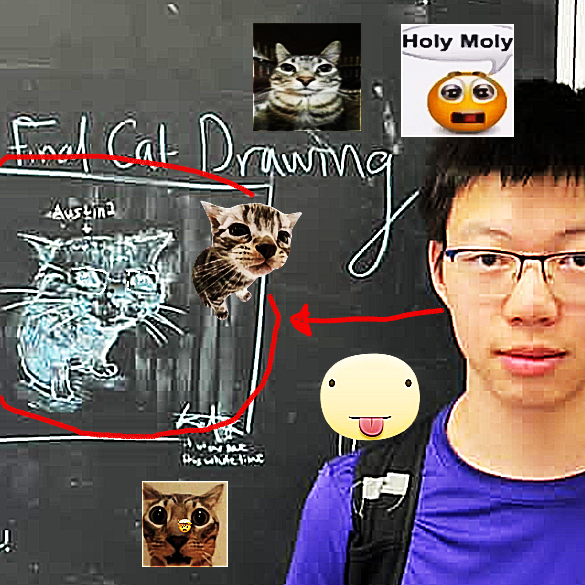 Holy Moly
Final Cat Drawing
Austin?
it was me
this whole time